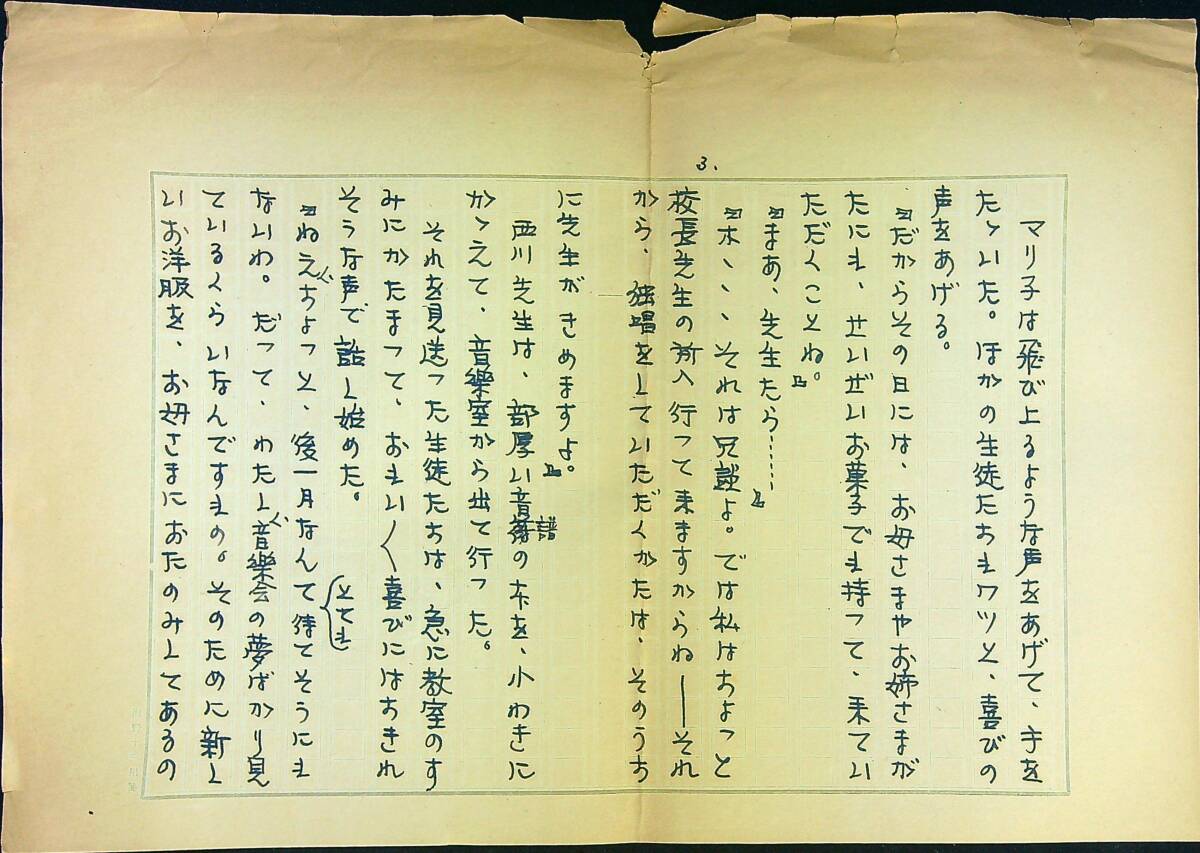 3.
マリ子は飛び上るような声をあげて、手を
たゝいた。ほかの生徒たちもワッと、喜びの
声をあげる。
『だからその日には、お母さまやお姉さまが
たにも、せいぜいお菓子でも持って、来てい
ただくことね。』
『まあ、先生たら……』
『ホヽヽそれは冗談よ。では私はちょっと
校長先生の前へ行って来ますからね――それ
から、独唱をしていただくかたは、そのうち
に先生がきめますよ。』
西川先生は、部厚い音譜の本を、小わきに
かゝえて、音樂室から出て行った。
それを見送った生徒たちは、急に教室のす
みにかたまって、おもい〱喜びにはちきれ
そうな声で話し始めた。
『ねえちょっと、後一月なんて待てそうにも
とても
ないわ。だって、わたし音樂会の夢ばかり見
ているくらいなんですもの。そのために新し
いお洋服を、お母さまにおたのみしてあるの